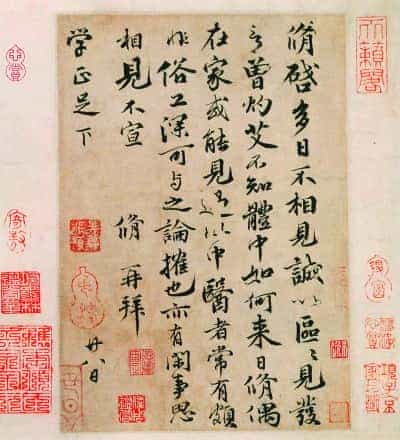 脩啓多日不相見誠以區〻見發
言曾灼艾不知體中如何来日脩偶
在家或能見過此中醫者常有頗
非俗工深可與之論搉也亦有閑事思
相見不宣 脩再拜
廿八日
学正足下
天籟閣